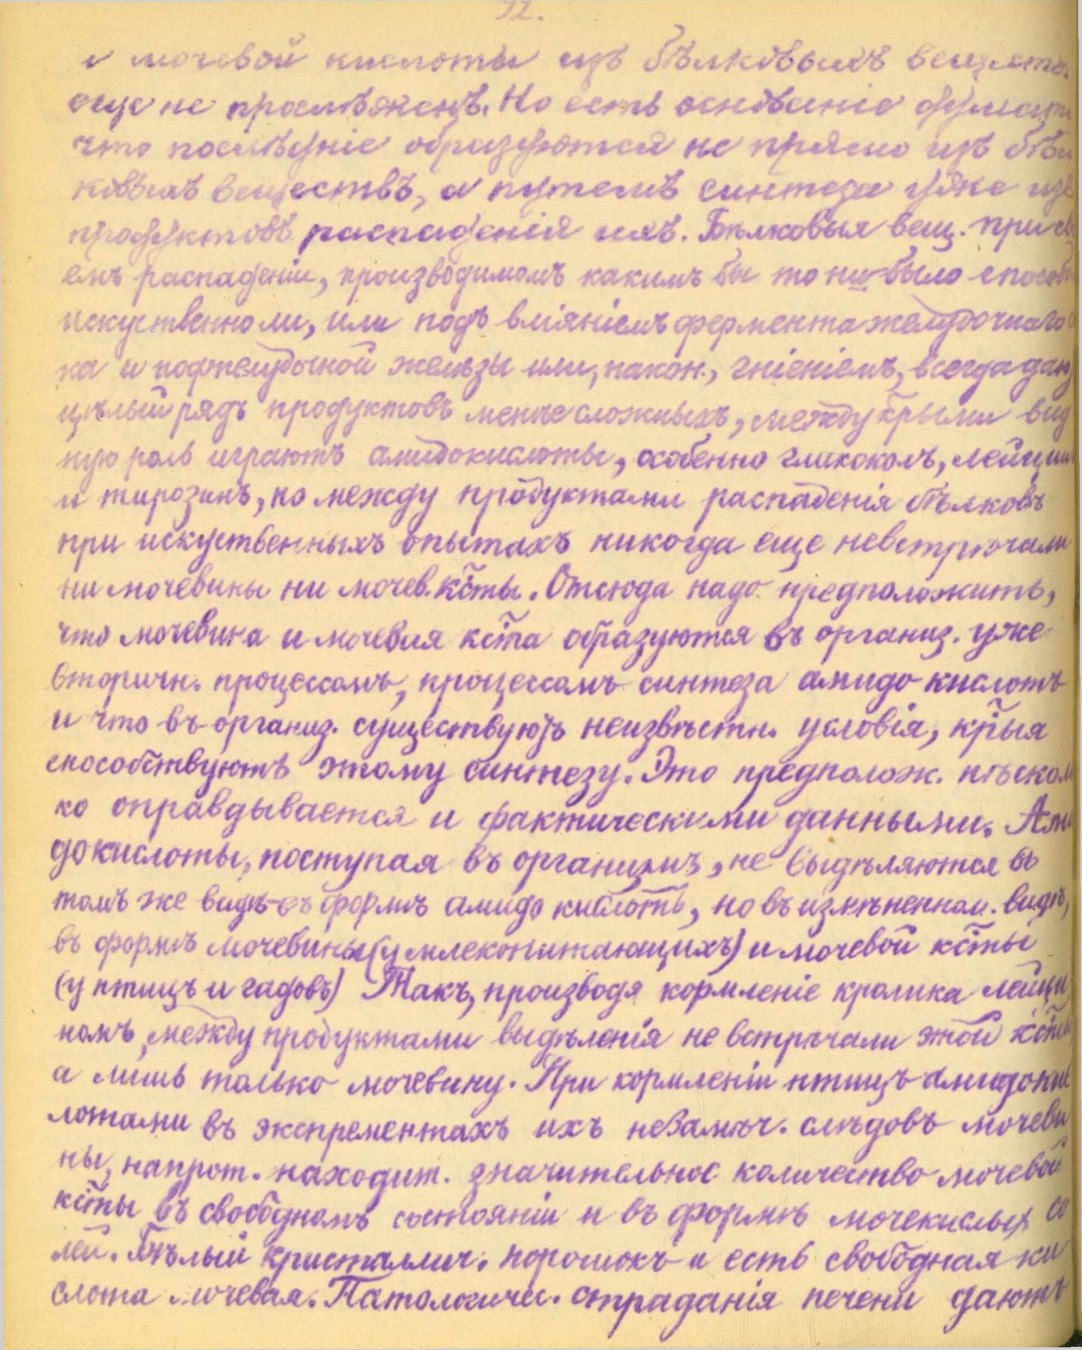 72.
и мочевой кислоты изъ бѣлковыхъ веществъ
еще не прослѣженъ. Но есть основаніе думать,
что послѣдніе образуются не прямо изъ бѣл
ковыхъ веществъ, а путемъ синтеза уже изъ
продуктовъ распаденія ихъ. Бѣлковыя вещ. при сво
емъ распаденіи, производимомъ какимъ бы то ни было способо
искуственно ли, или подъ вліяніемъ фермента желудочнаго со
ка и поджелудочной железы или, након., гніеніемъ, всегда даю
цѣлый рядъ продуктовъ менѣе сложныхъ, между к̃рыми вид
ную роль играютъ амидокислоты, особенно гликоколъ, лейцин
и тирозинъ, но между продуктами распаденія бѣлковъ
при искуственныхъ опытахъ никогда еще невстрѣчали
ни мочевины ни мочев. к̃сты. Отсюда надо предположить,
что мочевина и мочевая к̃ста образуются въ организ. уже
вторичн. процессомъ, процессомъ синтеза амидо кислотъ
и что въ организ. существуютъ неизвѣстн. условія, к̃рыя
способствуютъ этому синтезу. Это предполож. нѣсколь
ко оправдывается и фактическими данными. Ами
докислоты, поступая въ организмъ, не выдѣляются въ
томъ же видѣ въ формѣ амидо кислотъ, но въ измѣненном. видѣ,
въ формѣ мочевины (у млекопитающихъ) и мочевой к̃сты
(у птицъ и гадовъ) Такъ, производя кормленіе кролика лейци
номъ, между продуктами выдѣленія не встрѣчали этой к̃сты
а лишь только мочевину. При кормленіи птицъ амидокис
лотами въ экспрементахъ ихъ незамѣч. слѣдовъ мочеви
ны, напрот. находит. значительное количество мочевой
к̃сты въ свободномъ состояніи и въ формѣ мочекислых со
лей. Бѣлый кристаллич. порошокъ и есть свободная ки
слота мочевая. Патологичес. страданія печени даютъ